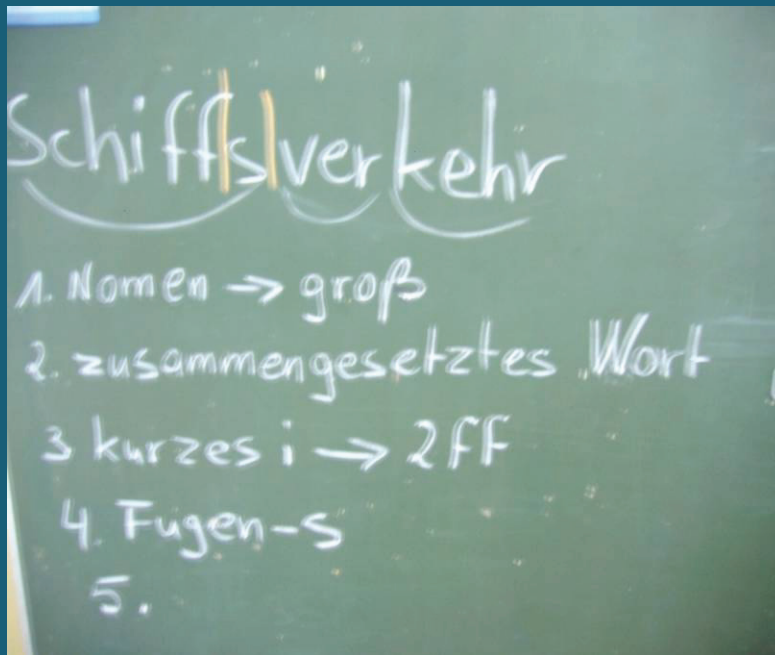 Schiff|s|verkehr
1. Nomen → groß
2. zusammengesetztes Wort
3 kurzes i → 2 ff
4. Fugen-s
5.